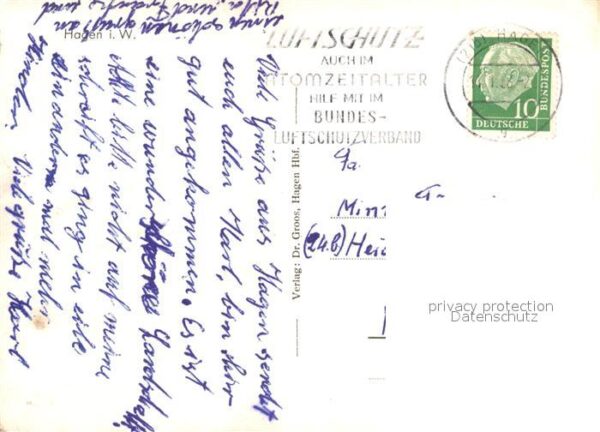 Hagen i. W.
LUFTSCHUTZ
AUCH IM
ATOMZEITALTER
HILF MIT IM
BUNDES-
LUFTSCHUTZVERBAND
10
DEUTSCHE
BUNDESPOST
Verlag: Dr. Groos, Hagen Hbf.
Viele Grüße aus Hagen sendet
euch allen Karl, bin hier
gut angekommen. Es ist
eine wunder schöne Landschaft
bitte nicht auf meine
schrift es ging in eile
ein anderes mal mehr
Viele grüße Karl
einen schönen gruß an
und
Fa.
(24b) Hei
privacy protection
Datenschutz